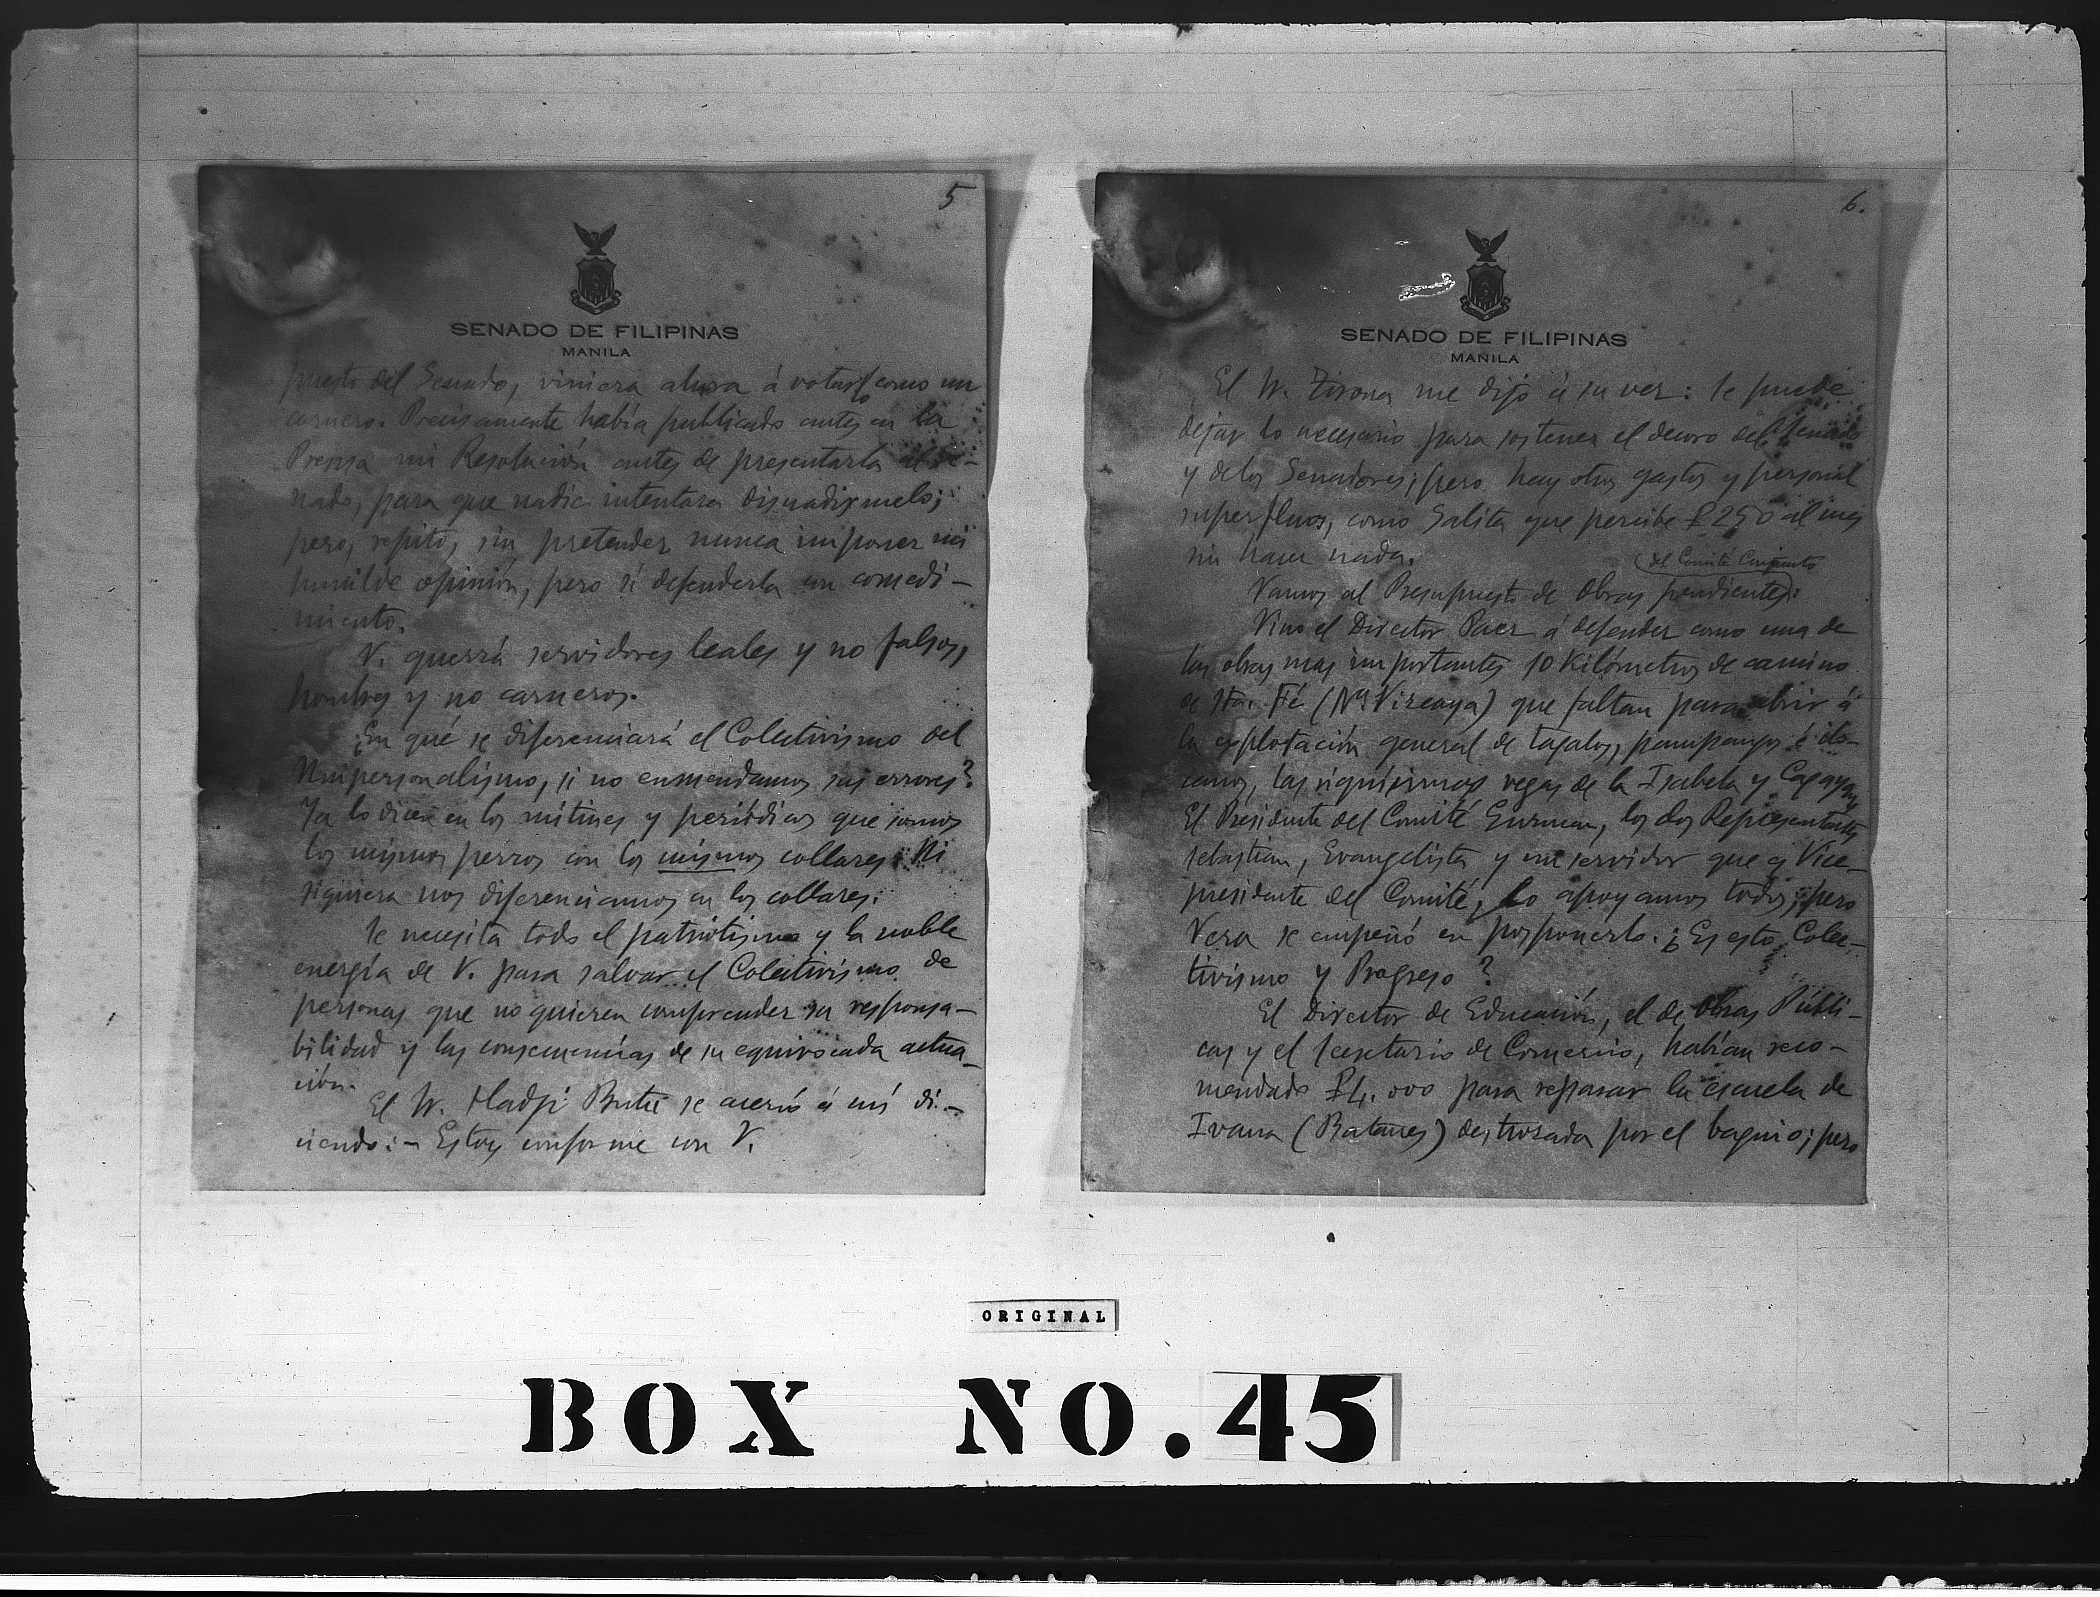 5
SENADO DE FILIPINAS
MANILA
puesto del Senado, viniera ahora á votarlo como un
carnero. Precisamente había publicado antes en la
Prensa mi Resolución antes de presentarla al Se-
nado, para que nadie intentara disuadirmelo;
pero, repito, sin pretender nunca imponer mi
humilde opinión, pero sí defenderla con comedi-
miento.
V. querrá servidores leales y no falsos,
hombres y no carneros.
¿En qué se diferenciará el Colectivismo del
Unipersonalismo, si no enmendamos sus errores?
Ya lo dicen en los mítines y periódicos que somos
los mismos perros con los mismos collares; Ni
siquiera nos diferenciamos en los collares.
Se necesita todo el patriotismo y la noble
energía de V. para salvar el Colectivismo de
personas que no quieren comprender su responsa-
bilidad y las consecuencias de su equivocada actua-
ción.
El Sr. Hadji Butu se acercó á mí di-
ciendo: - Estoy conforme con V.
6.
SENADO DE FILIPINAS
MANILA
El Sr. Tirona me dijo á su vez: Se puede
dejar lo necesario para sostener el decoro del Senado
y de los Senadores; pero hay otros gastos y personal
superfluos, como Salita que percibe ₱250 al mes
sin hacer nada.
(del Comité Conjunto
Vamos al Presupuesto de Obras pendientes):
Vino el Director Paez á defender como una de
las obras mas importantes 10 Kilómetros de camino
de Sta. Fé (Na. Vizcaya) que faltan para abrir á
la explotación general de tagalos, pampangos é ilo-
canos, las riquísimas vegas de la Isabela y Cagayan.
El Presidente del Comité Guzman, los dos Representantes
Sebastian, Evangelista y un servidor que es Vice-
presidente del Comité, lo apoyamos todos; pero
Vera se empeñó en posponerlo. ¿Es esto Colec-
tivismo y Progreso?
El Director de Educación, el de Obras Públi-
cas y el Secretario de Comercio, habían reco-
mendado ₱4.000 para reparar la escuela de
Ivana (Batanes) destrozada por el baguio; pero
ORIGINAL
BOX NO. 45